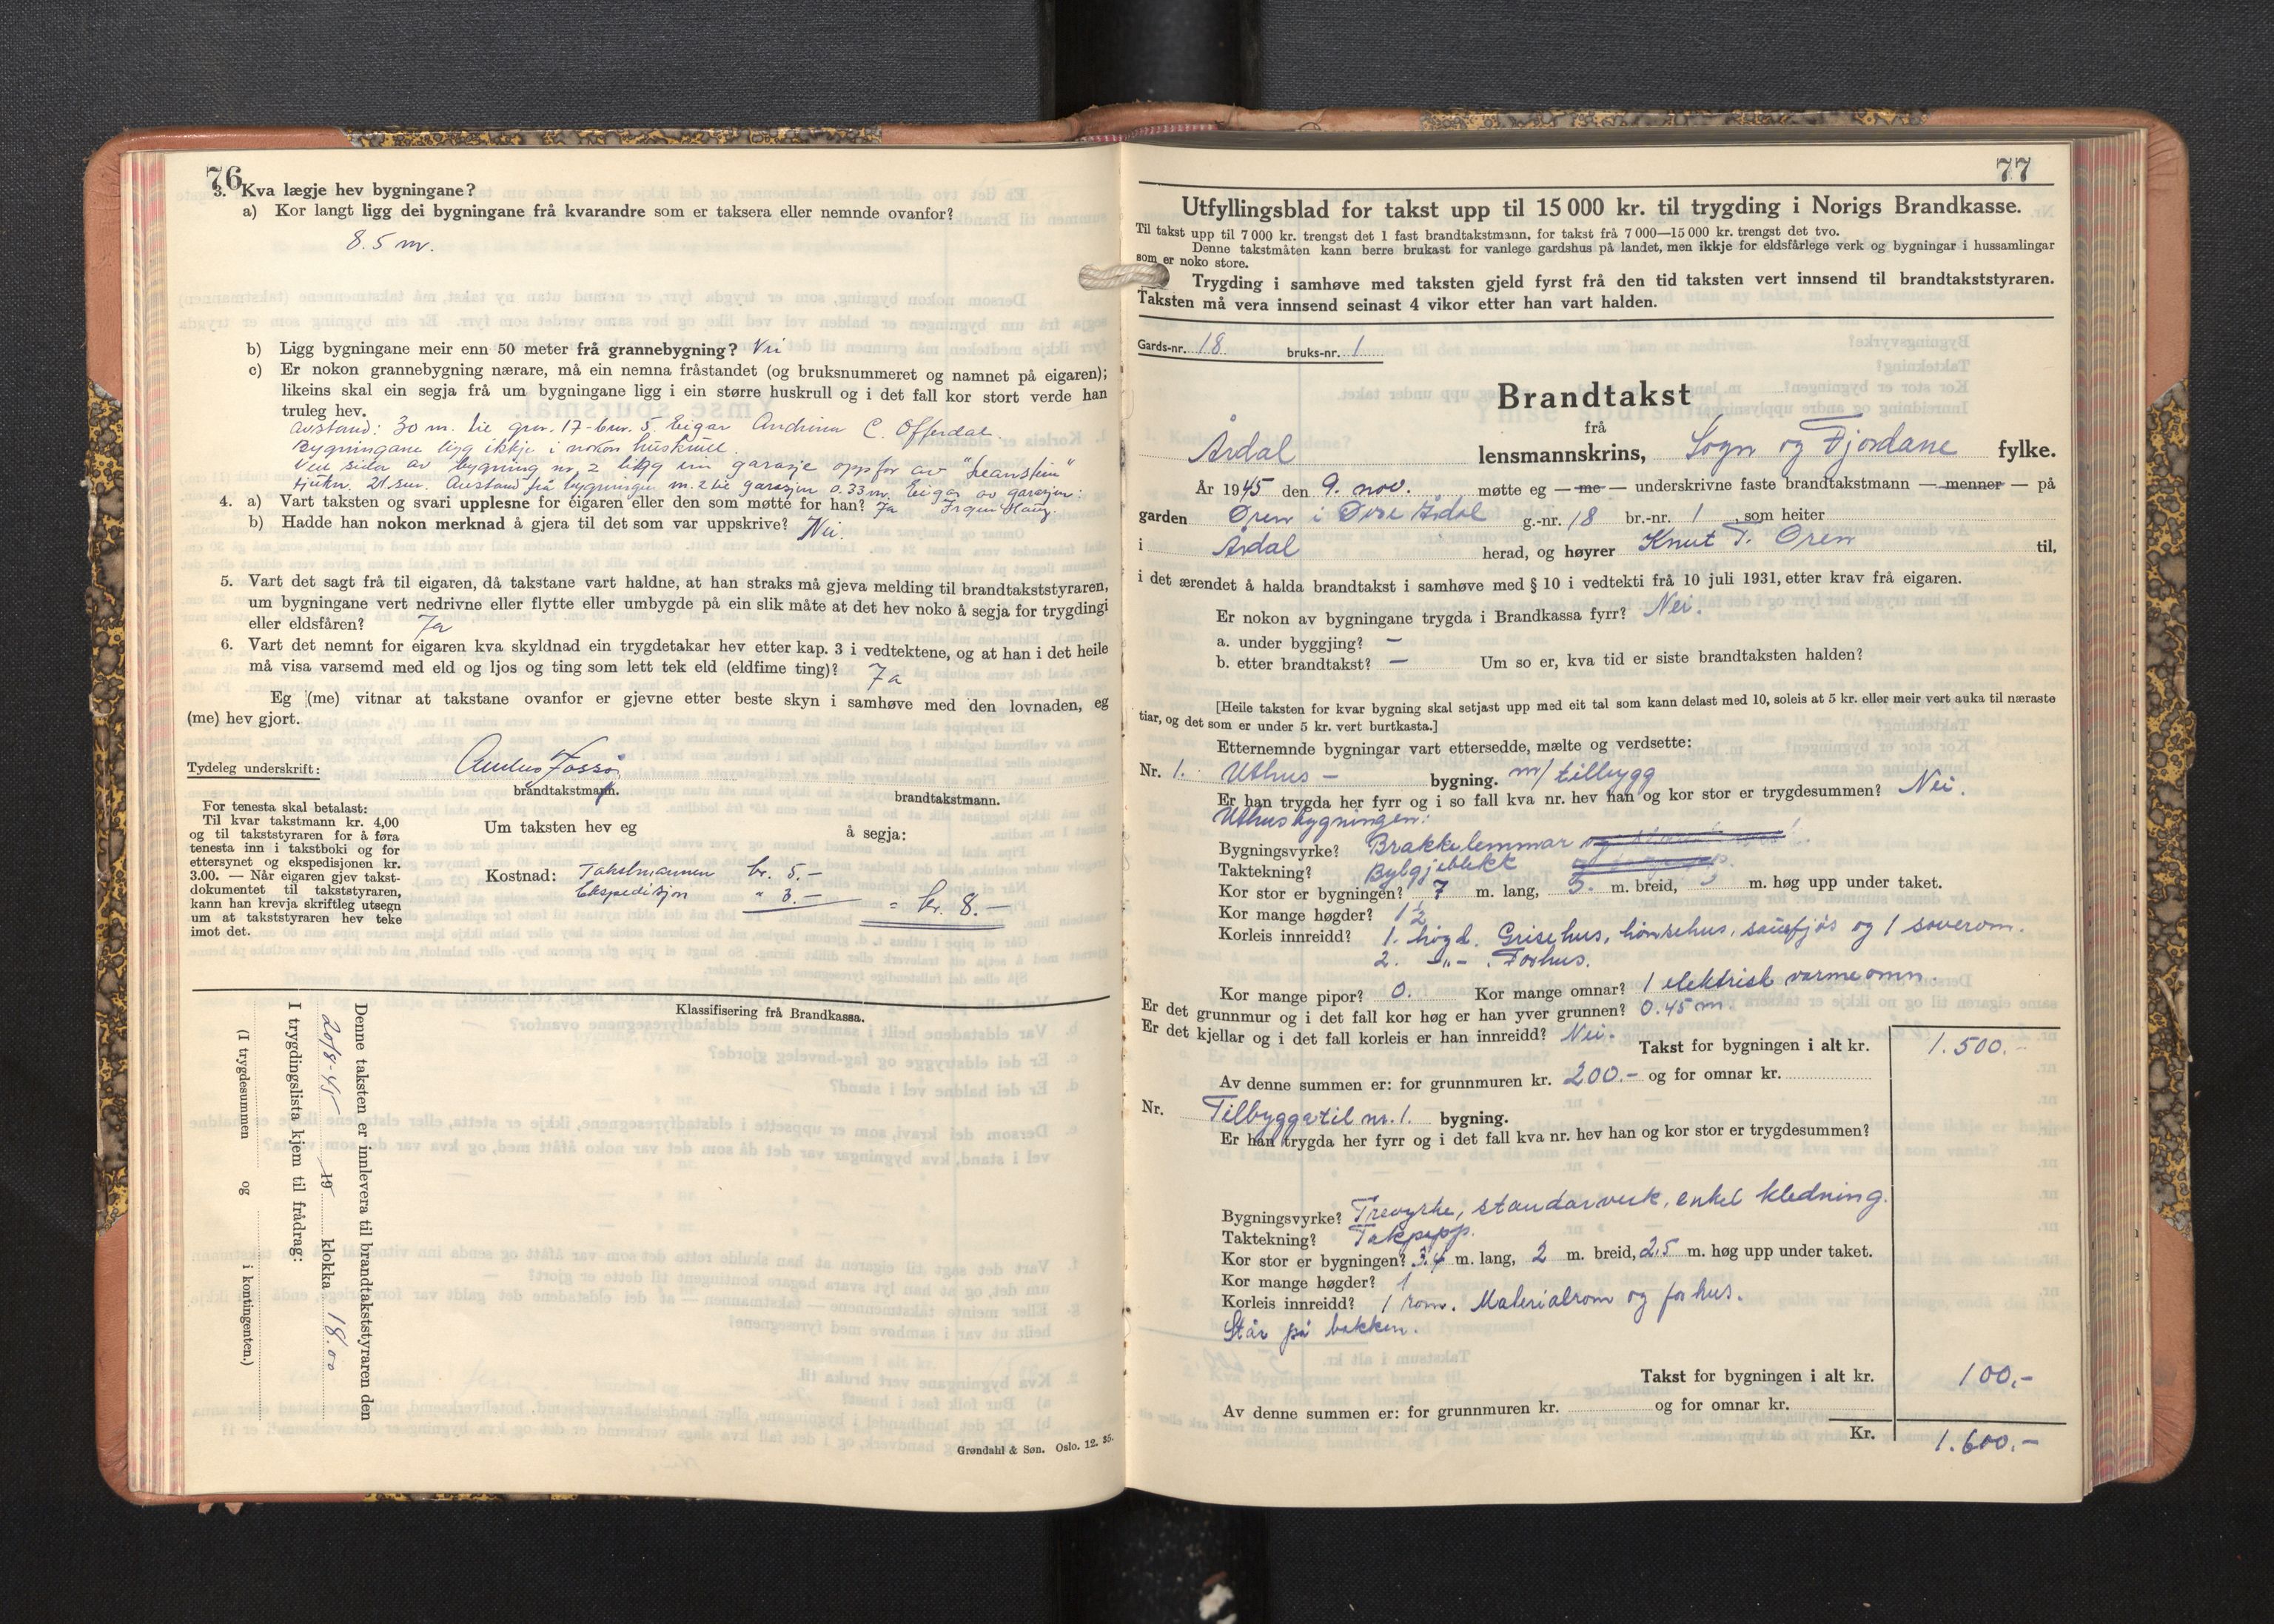 76
3. Kva lægje hev bygningane?
a) Kor langt ligg dei bygningane frå kvarandre som er taksera eller nemnde ovanfor?
8.5 m.
b) Ligg bygningane meir enn 50 meter frå grannebygning? Nei
c) Er nokon grannebygning nærare, må ein nemna fråstandet (og bruksnummeret og namnet på eigaren);
likeins skal ein segja frå um bygningane ligg i ein større huskrull og i det fall kor stort verde han
truleg hev.
Avstand: 30 m. til gnr. 17 - bnr. 5. Eigar C. Offerdal.
Bygningane ligg ikkje i nokon huskrull.
Ved sida av bygning nr. 2 ligg ein garasje oppfør av
tjukn. 21 sm. Avstand frå bygningen nr. 2 til garasjen 0.33 m. Eigar av garasjen:
4. a) Vart taksten og svari upplesne for eigaren eller den som møtte for han? Ja
b) Hadde han nokon merknad å gjera til det som var uppskrive? Nei.
5. Vart det sagt frå til eigaren, då takstane vart haldne, at han straks må gjeva melding til brandtakststyraren,
um bygningane vert nedrivne eller flytte eller umbygde på ein slik måte at det hev noko å segja for trygdingi
eller eldsfåren? Ja
6. Vart det nemnt for eigaren kva skyldnad ein trygdetakar hev etter kap. 3 i vedtektene, og at han i det heile
må visa varsemd med eld og ljos og ting som lett tek eld (eldfime ting)? Ja
Eg (me) vitnar at takstane ovanfor er gjevne etter beste skyn i samhøve med den lovnaden, eg
(me) hev gjort.
Tydeleg underskrift:
brandtakstmann. brandtakstmann.
For tenesta skal betalast:
Til kvar takstmann kr. 4,00
og til takststyraren for å føra
tenesta inn i takstboki og for
ettersynet og ekspedisjonen kr.
3.00. — Når eigaren gjev takst-
dokumentet til takststyraren,
kann han krevja skriftleg utsegn
um at takststyraren hev teke
imot det.
Um taksten hev eg å segja:
Kostnad: Takstmannen kr. 5.-
Ekspedisjon " 3.- = kr. 8.-
Klassifisering frå Brandkassa.
Denne taksten er innlevera til brandtakststyraren den
20/8-45 19 klokka 18.00
I trygdingslista kjem til frådrag:
(I trygdesummen og i kontingenten.)
Grøndahl & Søn. Oslo. 12. 35.
77
Utfyllingsblad for takst upp til 15 000 kr. til trygding i Norigs Brandkasse.
Til takst upp til 7 000 kr. trengst det 1 fast brandtakstmann, for takst frå 7 000—15 000 kr. trengst det tvo.
Denne takstmåten kann berre brukast for vanlege gardshus på landet, men ikkje for eldsfårlege verk og bygningar i hussamlingar
som er noko store.
Trygding i samhøve med taksten gjeld fyrst frå den tid taksten vert innsend til brandtakststyraren.
Taksten må vera innsend seinast 4 vikor etter han vart halden.
Gards-nr. 18 bruks-nr. 1
Brandtakst
frå
Årdal lensmannskrins, Sogn og Fjordane fylke.
År 1945 den 9. nov. møtte eg — me — underskrivne faste brandtakstmann — menner — på
garden Øren i Øvre Årdal g.-nr. 18 br.-nr. 1 som heiter
i Årdal herad, og høyrer Knut T. Øren til,
i det ærendet å halda brandtakst i samhøve med § 10 i vedtekti frå 10 juli 1931, etter krav frå eigaren.
Er nokon av bygningane trygda i Brandkassa fyrr? Nei.
a. under byggjing? —
b. etter brandtakst? — Um so er, kva tid er siste brandtaksten halden?
[Heile taksten for kvar bygning skal setjast upp med eit tal som kann delast med 10, soleis at 5 kr. eller meir vert auka til næraste
tiar, og det som er under 5 kr. vert burtkasta.]
Etternemnde bygningar vart ettersedde, mælte og verdsette:
Nr. 1. Uthus - bygning. m/ tilbygg
Er han trygda her fyrr og i so fall kva nr. hev han og kor stor er trygdesummen? Nei.
Uthusbygningen:
Bygningsvyrke? Brakkelemmar
Taktekning? Bylgjeblekk
Kor stor er bygningen? 7 m. lang, 5. m. breid, 3 m. høg upp under taket.
Kor mange høgder? 1½
Korleis innreidd? 1. høgd. Grisehus, hønsehus, sauefjøs og 1 soverom.
2. -"- . Forhus.
Kor mange pipor? 0. Kor mange omnar? 1 elektrisk varmeomn.
Er det grunnmur og i det fall kor høg er han yver grunnen? 0.45 m.
Er det kjellar og i det fall korleis er han innreidd? Nei.
Takst for bygningen i alt kr. 1.500.-
Av denne summen er: for grunnmuren kr. 200.- og for omnar kr.
Nr. Tilbygga til nr. 1. bygning.
Er han trygda her fyrr og i det fall kva nr. hev han og kor stor er trygdesummen?
Bygningsvyrke? Trevyrke, standarverk, enkel kledning.
Taktekning? Takpapp.
Kor stor er bygningen? 3.4 m. lang, 2 m. breid, 2.5 m. høg upp under taket.
Kor mange høgder? 1
Korleis innreidd? 1 rom. Materialrom og forhus.
Står på bakken.
Takst for bygningen i alt kr. 100.-
Av denne summen er: for grunnmuren kr. og for omnar kr.
Kr. 1.600.-